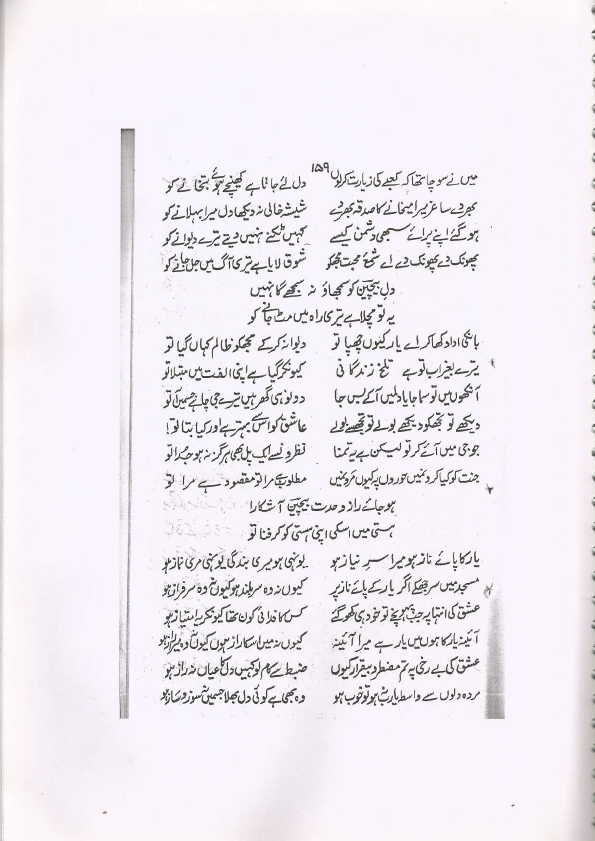 ۱۵۹
میں نے سوچا تھا کہ کعبے کی زیارت کرلوں دل لے جاتا ہے کھینچے ہوئے بتخانے کو
بھردے ساغر میرا میخانے کا صدقہ بھردے شیشہ خالی نہ دیکھا دل میرا بہلانے کو
ہوگئے اپنے پرائے سبھی دشمن کیسے کہیں ٹکنے نہیں دیتے تیرے دیوانے کو
پھونک دے پھونک دے اے شمع محبت مجھکو شوق لایا ہے تری آگ میں جل جانے کو
دل بیچین کو سمجھاؤ نہ سمجھے گا نہیں
یہ تو مچلا ہے تیری راہ میں مٹ جانے کو
بانکی ادا دکھا کر اے یار کیوں چھپا تو دیوانہ کرکے مجھکو ظالم کہاں گیا تو
تیرے بغیر اب تو ہے تلخ زندگانی کیونکر گیا ہے اپنی الفت میں مبتلا تو
آنکھوں میں تو سما جا یا دلمیں آکے بس جا دونوں ہی گھر ہیں تیرے جی چاہے جسمیں آ تو
دیکھے تو تجھکو دیکھے بولے تو تجھسے بولے عاشق کو اس سے بہتر ہے اور کیا بتا تو!
جو جی میں آئے کر تو لیکن ہے یہ تمنا نظرونسے ایک پل بھی ہرگز نہ ہو جدا تو
جنت کو کیا کروں میں حوروں پر کیوں مروں میں مطلوب ہے مرا تو مقصود ہے مرا تو
ہو جائے راز وحدت بیچین آشکارا
ہستی میں اسکی اپنی ہستی کو کر فنا تو
یار کا پائے ناز ہو میرا سر نیاز ہو یونہی ہو میری بندگی یونہی مری نماز ہو
مسجد میں سر جھکے اگر یار کے پائے ناز پر کیوں نہ وہ سربلند ہو کیوں نہ وہ سرفراز ہو
عشق کی انتہا پر جب پہونچے تو خود ہی کھوگئے کس کا فدائی کون تھا کیونکر یہ امتیاز ہو
آئینہ یار کا ہوں میں یار ہے میرا آئینہ کیوں نہ میں اسکا راز ہوں کیوں نہ وہ میرا راز ہو
عشق کی بے رخی پہ تم مضطر و بیقرار کیوں ضبط سے کام لو کہیں دل کا عیاں نہ راز ہو
مردہ دلوں سے واسطہ یارب نہ ہو تو خوب ہو وہ بھی ہے کوئی دل بھلا جسمیں نہ سوز و ساز ہو